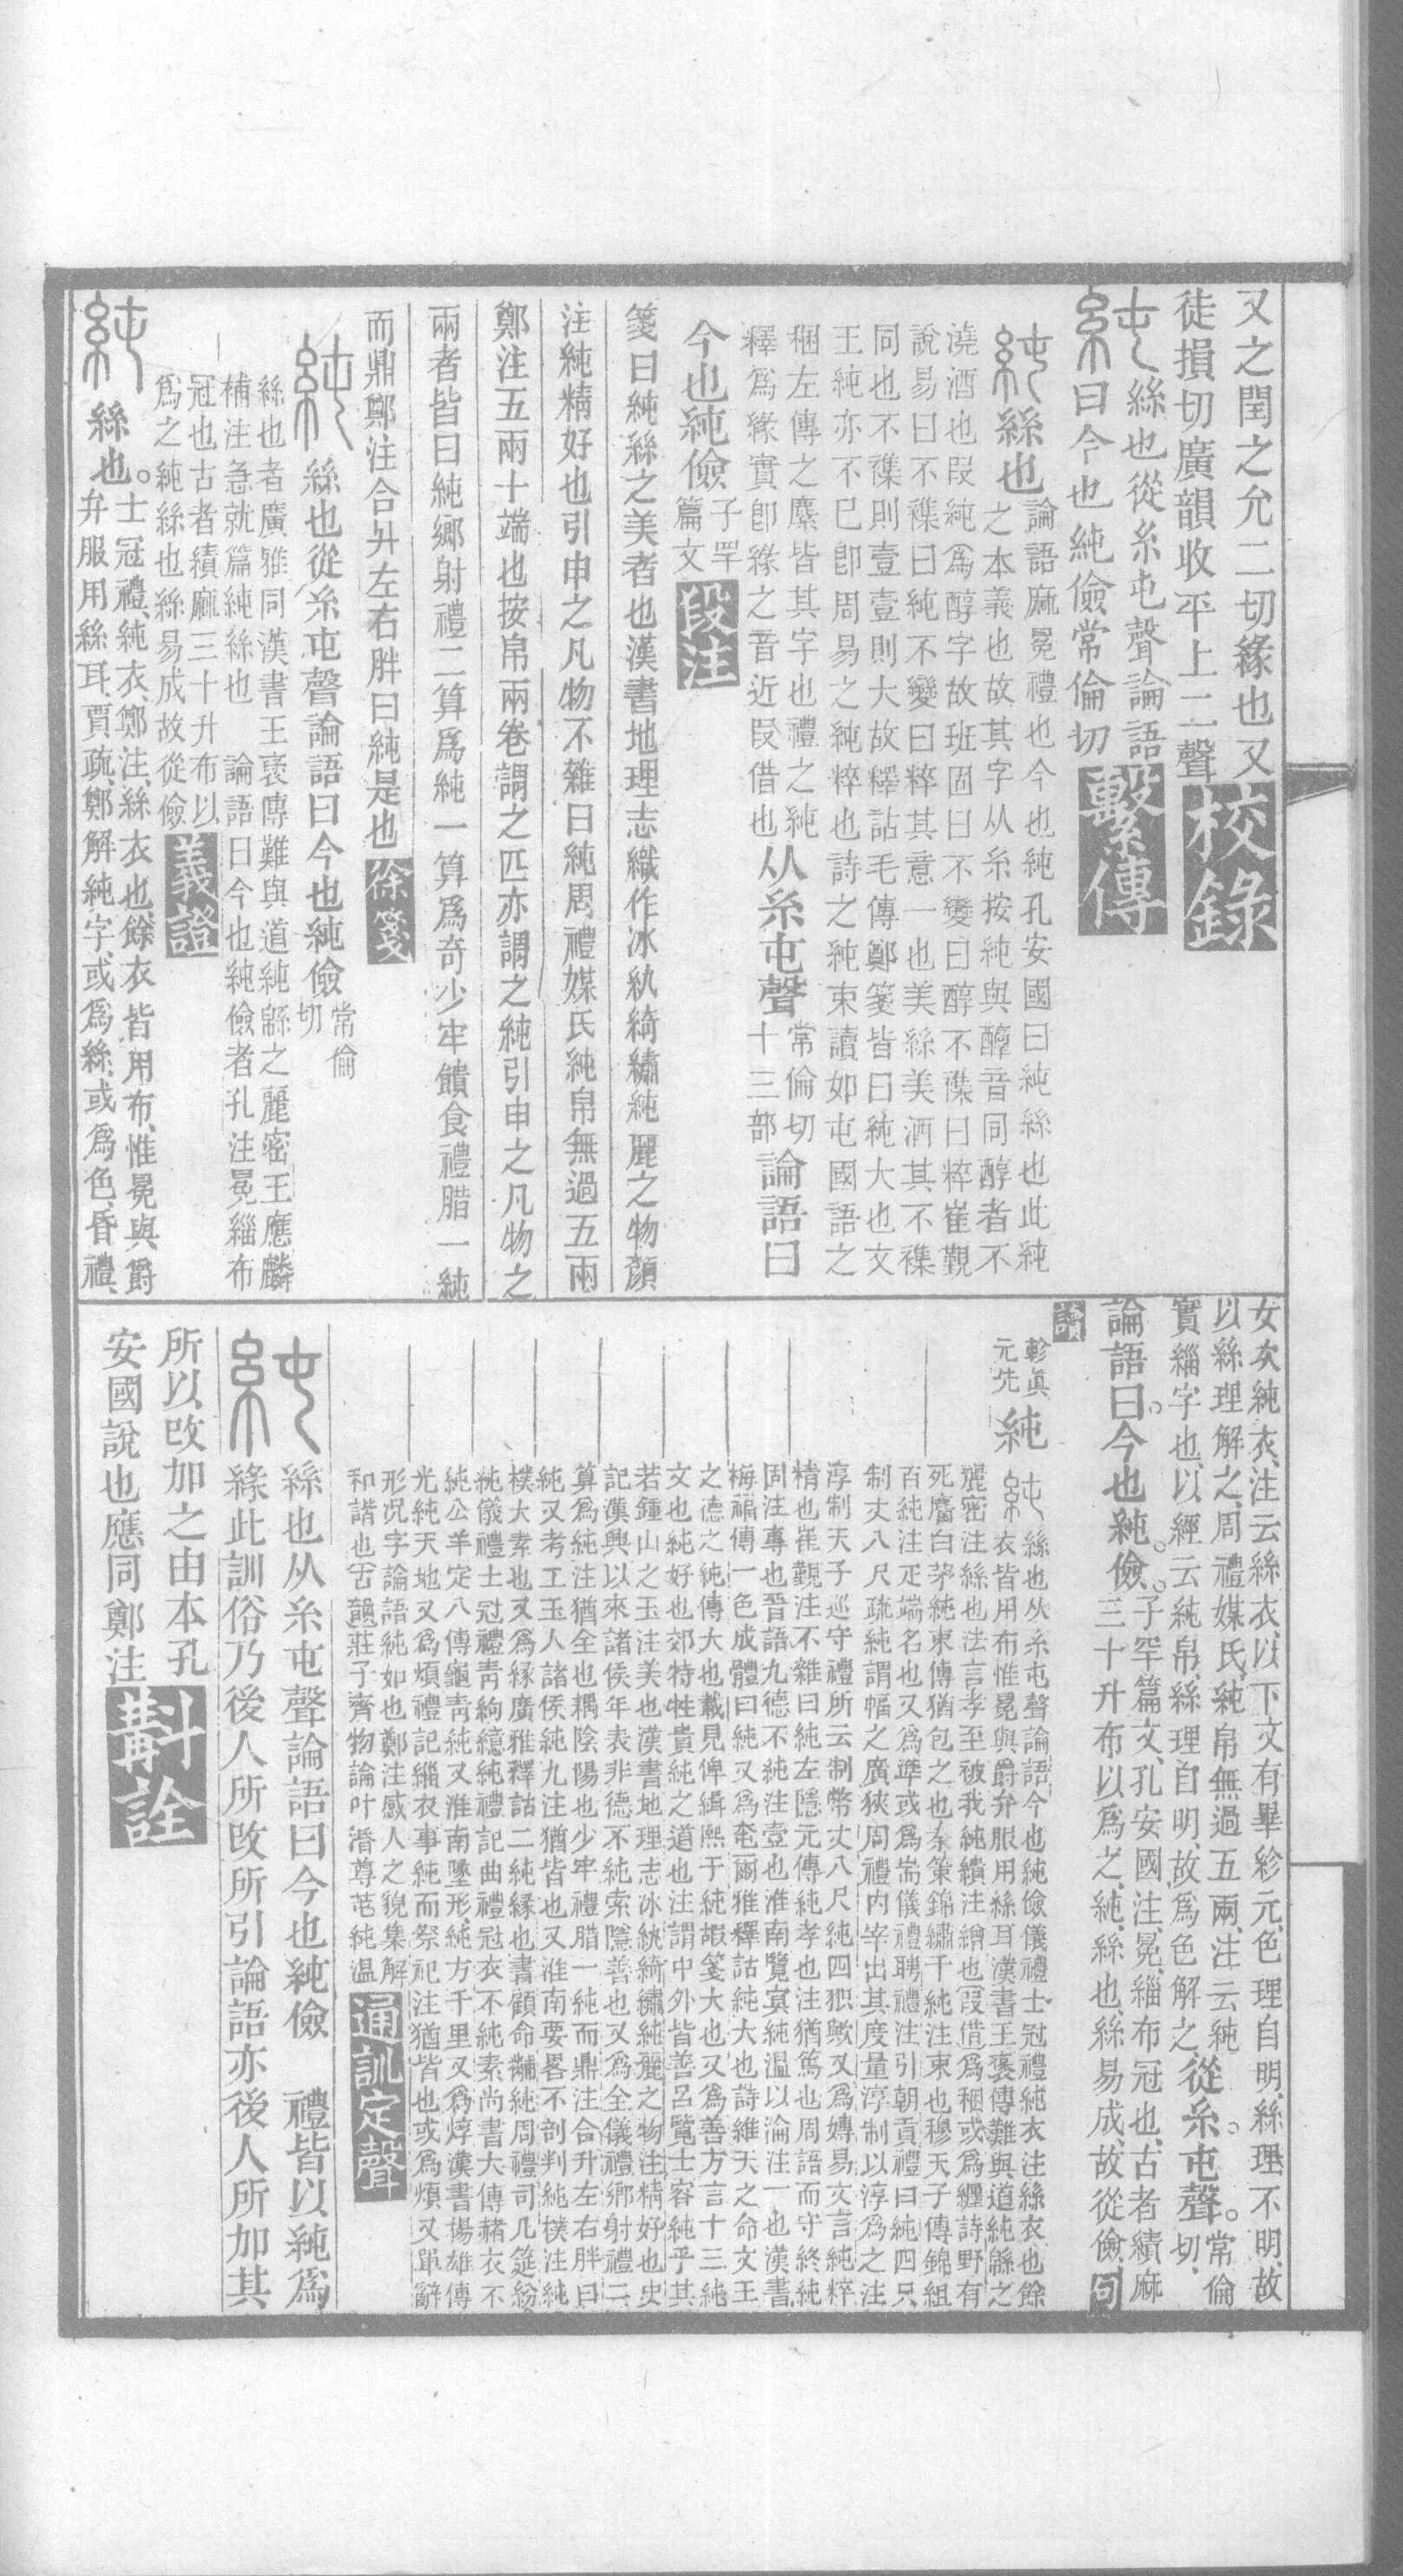 又之閏之允二切緣也又
徒損切廣韻收平上二聲校錄
純絲也從糸屯聲論語
曰今也純儉常倫切繫傳
純絲也論語麻冕禮也今也純孔安國曰純絲也此純
之本義也故其字从糸按純與醇音同醇者不
澆酒也叚純爲醇字故班固曰不變曰醇不襍曰粹崔覲
說易曰不襍曰純不變曰粹其意一也美絲美酒其不襍
同也不襍則壹壹則大故釋詁毛傳鄭箋皆曰純大也文
王純亦不已卽周易之純粹也詩之純束讀如屯國語之
稇左傳之麇皆其字也禮之純
釋爲緣實卽緣之音近叚借也从糸屯聲常倫切十三部論語曰
今也純儉子罕篇文段注
箋曰純絲之美者也漢書地理志織作冰紈綺繡純麗之物顏
注純精好也引申之凡物不雜曰純周禮媒氏純帛無過五兩
鄭注五兩十端也按帛兩卷謂之匹亦謂之純引申之凡物之
兩者皆曰純鄉射禮二算爲純一算爲奇少牢饋食禮腊一純
而鼎鄭注合升左右胖曰純是也徐箋
純絲也從糸屯聲論語曰今也純儉常倫切
絲也者廣雅同漢書王襃傳難與道純緜之麗密王應麟
補注急就篇純絲也　論語曰今也純儉者孔注冕緇布
冠也古者績麻三十升布以
爲之純絲也絲易成故從儉義證
純絲也。士冠禮、純衣、鄭注、絲衣也、餘衣皆用布、惟冕與爵
弁服用絲耳、賈疏、鄭解純字或爲絲、或爲色、昏禮、
女次純衣、注云絲衣、以下文有畢袗元、色理自明、絲理不明、故
以絲理解之、周禮媒氏、純帛無過五兩、注云純
實緇字也、以經云純帛、絲理自明、故爲色解之、從糸。屯聲。常倫切、
論語曰。今也純。儉。子罕篇文、孔安國注、冕、緇布冠也、古者績麻
三十升布以爲之、純、絲也、絲易成、故從儉、句
讀
軫眞元先純
純絲也从糸屯聲論語今也純儉儀禮士冠禮純衣注絲衣也餘
衣皆用布惟冕與爵弁服用絲耳漢書王褒傳難與道純緜之
麗密注絲也法言孝至被我純繢注繒也叚借爲稇或爲纏詩野有
死麕白茅純束傳猶包之也秦策錦繡千純注束也穆天子傳錦組
百純注疋端名也又爲𦎧或爲耑儀禮聘禮注引朝貢禮曰純四只
制丈八尺疏純謂幅之廣狹周禮內宰出其度量淳制以淳爲之注
淳制天子巡守禮所云制幣丈八尺純四𰄞歟又爲嫥易文言純粹
精也崔覲注不雜曰純左隱元傳純孝也注猶篤也周語而守終純
固注專也晉語九德不純注壹也淮南覽冥純溫以淪注一也漢書
梅福傳一色成體曰純又爲奄爾雅釋詁純大也詩維天之命文王
之德之純傳大也載見俾緝熙于純嘏箋大也又爲善方言十三純
文也純好也郊特牲貴純之道也注謂中外皆善呂覽士容純乎其
若鍾山之玉注美也漢書地理志冰紈綺繡純麗之物注精好也史
記漢興以來諸侯年表非德不純索隱善也又爲全儀禮鄉射禮二
算爲純注猶全也耦陰陽也少牢禮腊一純而鼎注合升左右胖曰
純又考工玉人諸侯純九注猶皆也又淮南要畧不剖判純樸注純
樸大素也又爲緣廣雅釋詁二純緣也書顧命黼純周禮司几筵紛
純儀禮士冠禮青絇繶純禮記曲禮冠衣不純素尚書大傳赭衣不
純公羊定八傳龜青純又淮南墬形純方千里又爲焞漢書揚雄傳
光純天地又爲煩禮記緇衣事純而祭祀注猶皆也或爲煩又單辭
形況字論語純如也鄭注感人之貌集解
和諧也古韻莊子齊物論叶湣尊芚純溫通訓定聲
純絲也从糸屯聲論語曰今也純儉　禮皆以純爲
緣此訓俗乃後人所改所引論語亦後人所加其
所以改加之由本孔
安國說也應同鄭注斠詮